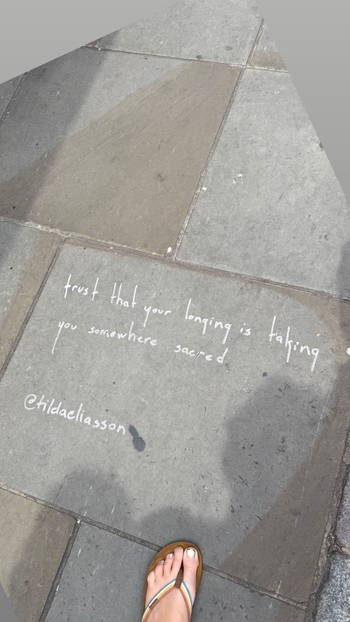 trust that your longing is taking
you somewhere sacred
@tildaeliasson